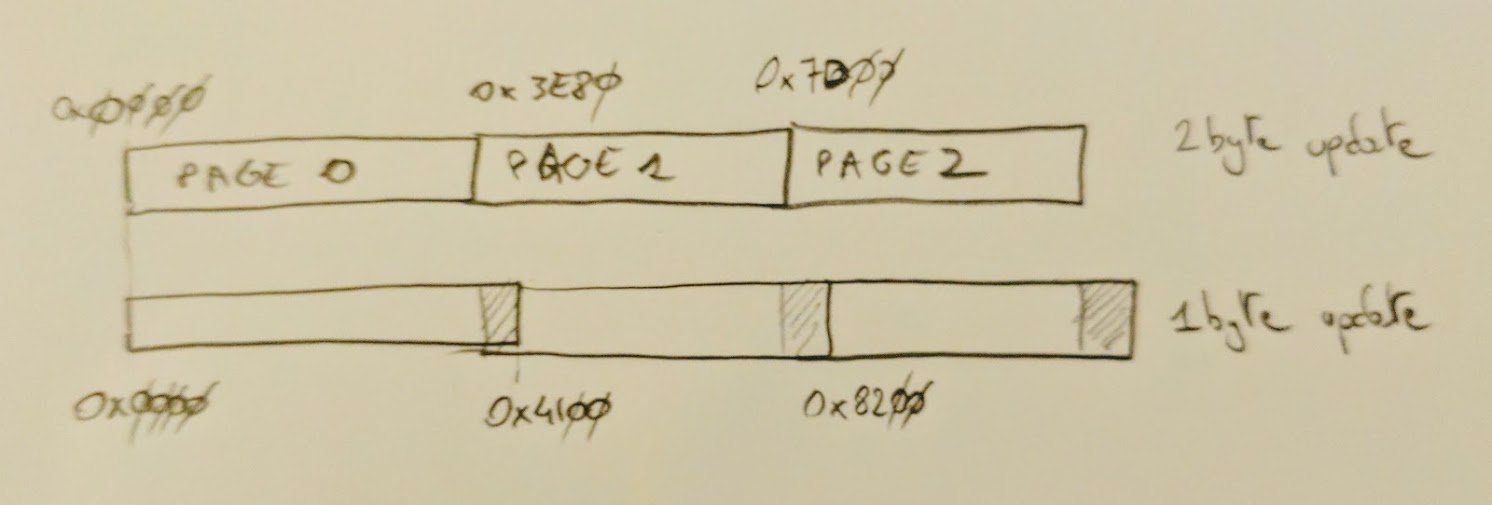 0x0000 0x3E80 0x7D00
PAGE 0 PAGE 1 PAGE 2 2 byte update
1 byte update
0x0000 0x4100 0x8200